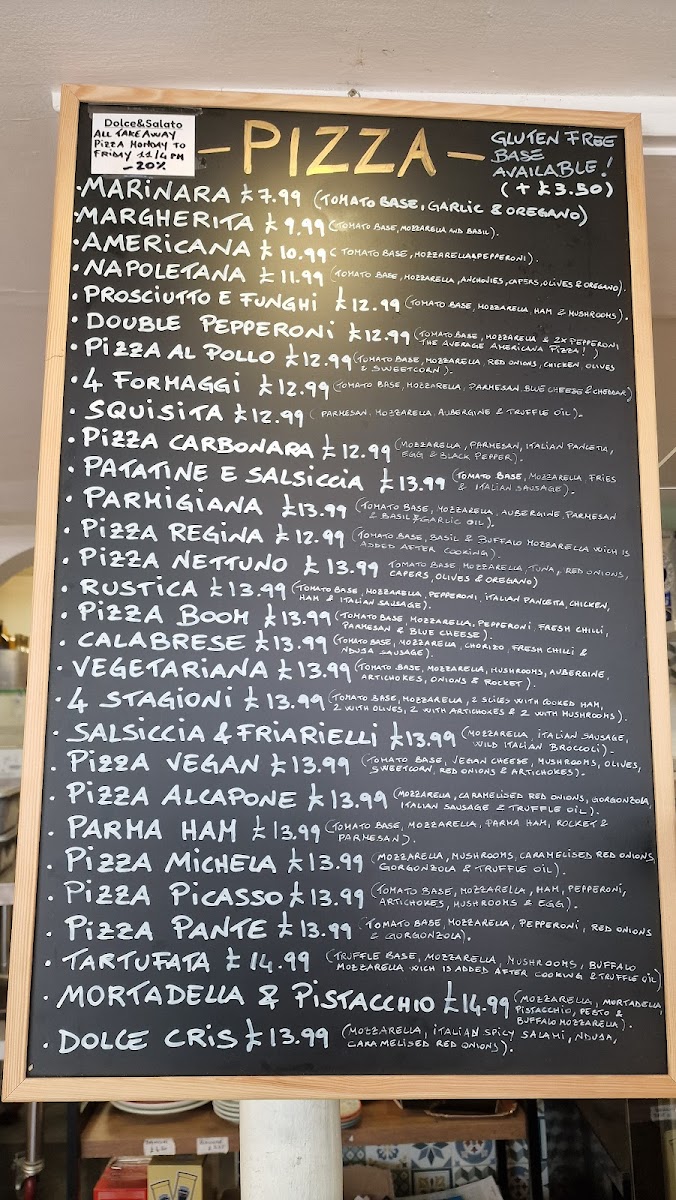 Dolce&Salato
ALL TAKE AWAY
PIZZA MONDAY TO
FRIDAY 11/4 PM
-20%
- PIZZA -
GLUTEN FREE
BASE
AVAILABLE!
(+ £3.50)
· MARINARA £7.99 (TOMATO BASE, GARLIC & OREGANO)
· MARGHERITA £9.99 (TOMATO BASE, MOZZARELLA AND BASIL).
· AMERICANA £10.99 (TOMATO BASE, MOZZARELLA & PEPPERONI).
· NAPOLETANA £11.99 (TOMATO BASE, MOZZARELLA, ANCHONIES, CAPERS, OLIVES & OREGANO).
· PROSCIUTTO E FUNGHI £12.99 (TOMATO BASE, MOZZARELLA, HAM & MUSHROOMS).
· DOUBLE PEPPERONI £12.99 (TOMATO BASE, MOZZARELLA & 2X PEPPERONI
THE AVERAGE AMERICANA PIZZA!)
· PIZZA AL POLLO £12.99 (TOMATO BASE, MOZZARELLA, RED ONIONS, CHICKEN, OLIVES
& SWEETCORN).
· 4 FORMAGGI £12.99 (TOMATO BASE, MOZZARELLA, PARMESAN, BLUE CHEESE & CHEDDAR)
· SQUISITA £12.99 (PARMESAN, MOZZARELLA, AUBERGINE & TRUFFLE OIL).
· PIZZA CARBONARA £12.99 (MOZZARELLA, PARMESAN, ITALIAN PANCETTA,
EGG & BLACK PEPPER).
· PATATINE E SALSICCIA £13.99 (TOMATO BASE, MOZZARELLA, FRIES
& ITALIAN SAUSAGE).
· PARMIGIANA £13.99 (TOMATO BASE, MOZZARELLA, AUBERGINE, PARMESAN
& BASIL & GARLIC OIL).
· PIZZA REGINA £12.99 (TOMATO BASE, BASIL & BUFFALO MOZZARELLA WICH IS
ADDED AFTER COOKING).
· PIZZA NETTUNO £13.99 TOMATO BASE, MOZZARELLA, TUNA, RED ONIONS,
CAPERS, OLIVES & OREGANO)
· RUSTICA £13.99 (TOMATO BASE, MOZZARELLA, PEPPERONI, ITALIAN PANCETTA, CHICKEN,
HAM & ITALIAN SAUSAGE).
· PIZZA BOOM £13.99 (TOMATO BASE, MOZZARELLA, PEPPERONI, FRESH CHILLI,
PARMESAN & BLUE CHEESE).
· CALABRESE £13.99 (TOMATO BASE, MOZZARELLA, CHORIZO, FRESH CHILLI &
NDUSA SAUSAGE).
· VEGETARIANA £13.99 (TOMATO BASE, MOZZARELLA, MUSHROOMS, AUBERGINE,
ARTICHOKES, ONIONS & ROCKET).
· 4 STAGIONI £13.99 (TOMATO BASE, MOZZARELLA, 2 SLICES WITH COOKED HAM,
2 WITH OLIVES, 2 WITH ARTICHOKES & 2 WITH MUSHROOMS).
· SALSICCIA & FRIARIELLI £13.99 (MOZZARELLA, ITALIAN SAUSAGE,
WILD ITALIAN BROCCOLI).
· PIZZA VEGAN £13.99 (TOMATO BASE, VEGAN CHEESE, MUSHROOMS, OLIVES,
SWEETCORN, RED ONIONS & ARTICHOKES).
· PIZZA ALCAPONE £13.99 (MOZZARELLA, CARAMELISED RED ONIONS, GORGONZOLA,
ITALIAN SAUSAGE & TRUFFLE OIL).
· PARMA HAM £13.99 (TOMATO BASE, MOZZARELLA, PARMA HAM, ROCKET &
PARMESAN).
· PIZZA MICHELA £13.99 (MOZZARELLA, MUSHROOMS, CARAMELISED RED ONIONS,
GORGONZOLA & TRUFFLE OIL).
· PIZZA PICASSO £13.99 (TOMATO BASE, MOZZARELLA, HAM, PEPPERONI,
ARTICHOKES, MUSHROOMS & EGG).
· PIZZA PANTE £13.99 (TOMATO BASE, MOZZARELLA, PEPPERONI, RED ONIONS
& GORGONZOLA).
· TARTUFATA £14.99 (TRUFFLE BASE, MOZZARELLA, MUSHROOMS, BUFFALO
MOZZARELLA WICH IS ADDED AFTER COOKING & TRUFFLE OIL)
· MORTADELLA & PISTACCHIO £14.99 (MOZZARELLA, MORTADELLA,
PISTACCHIO, PESTO &
BUFFALO MOZZARELLA).
· DOLCE CRIS £13.99 (MOZZARELLA, ITALIAN SPICY SALAMI, NDUSA,
CARAMELISED RED ONIONS).